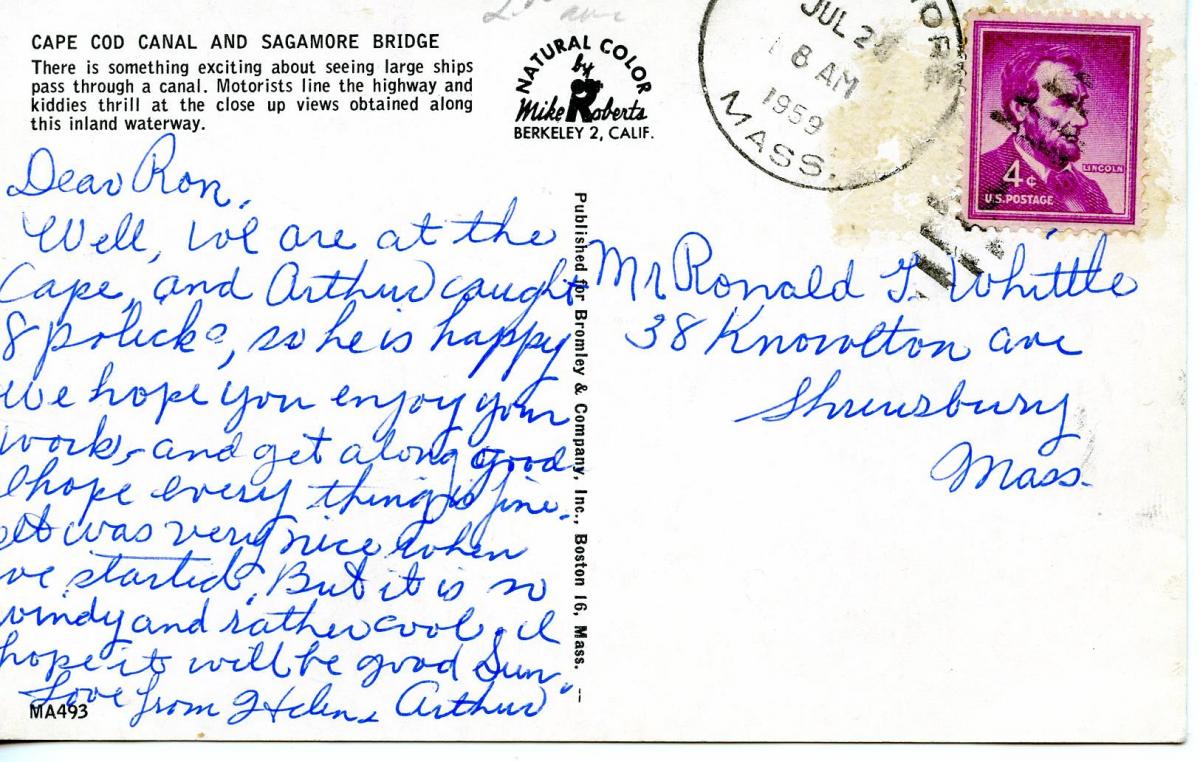 CAPE COD CANAL AND SAGAMORE BRIDGE
There is something exciting about seeing large ships
pass through a canal. Motorists line the highway and
kiddies thrill at the close up views obtained along
this inland waterway.
NATURAL COLOR
by
Mike Roberts
BERKELEY 2, CALIF.
JUL 2
8 AM
1959
MASS.
4¢
LINCOLN
U.S. POSTAGE
Dear Ron,
Well, we are at the
Cape, and Arthur caught
8 pollicks, so he is happy
we hope you enjoy your
work, and get along good
I hope every thing is fine.
It was very nice when
we started. But it is so
windy and rather cool. I
hope it will be good Sun.
Love from Helen & Arthur
MA493
Published for Bromley & Company, Inc., Boston 16, Mass.
Mr Ronald T. Whittle
38 Knowlton ave
Shrewsbury
Mass.